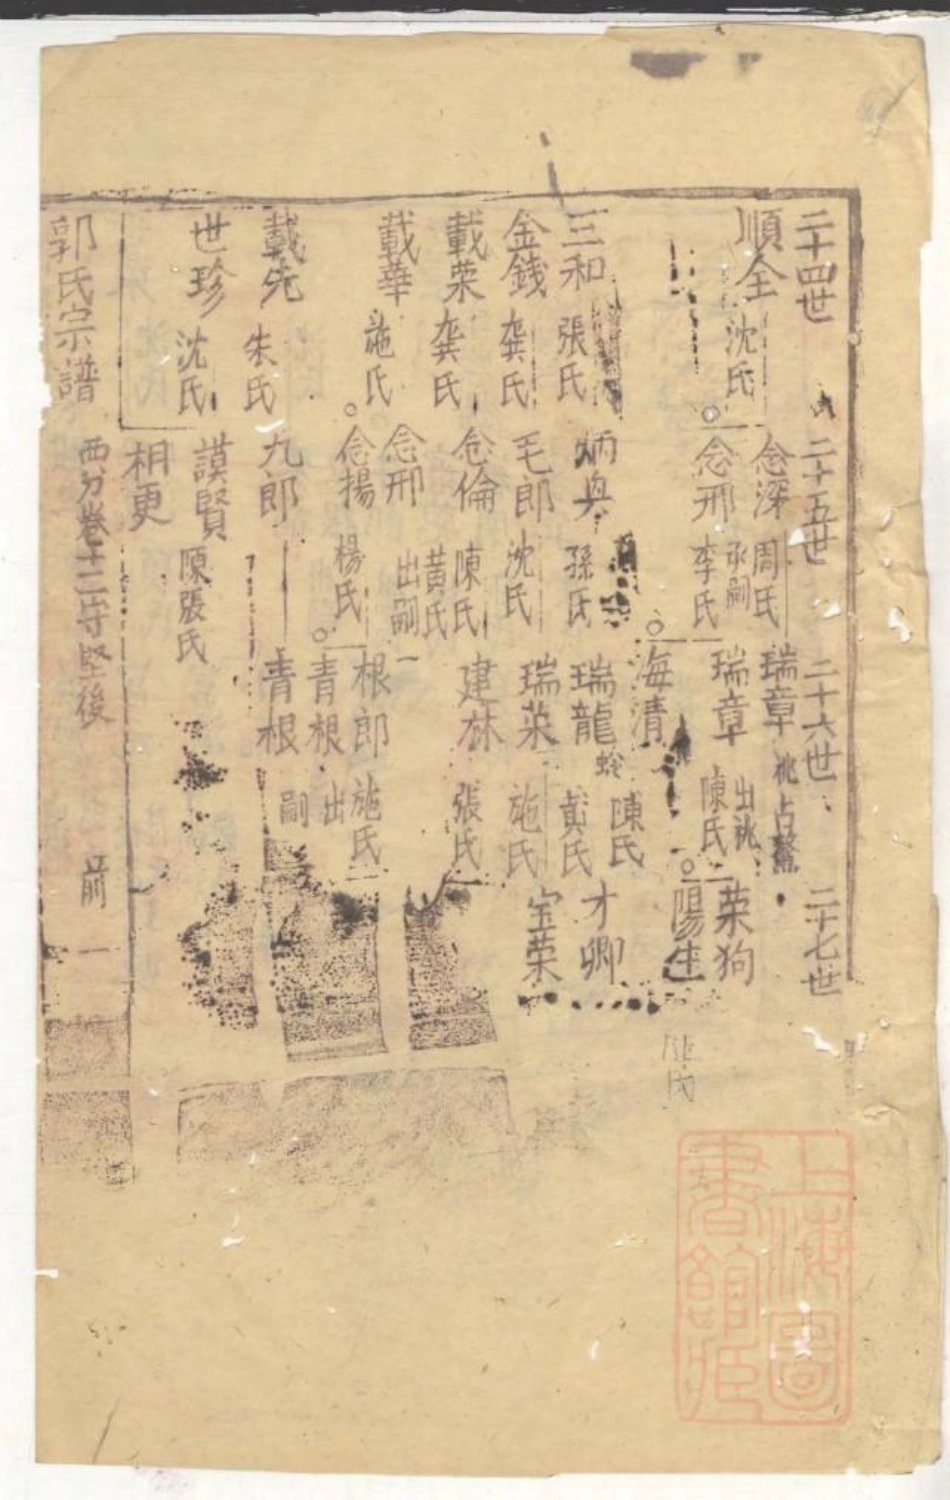 二十四世
二十五世
二十六世
二十七世
順全 沈氏
念深 周氏
承嗣
念邢 李氏
瑞章 祧占鰲
瑞章 出祧
陳氏
荣狗
陽生
陳氏
海清
三和 張氏
炳與 孫氏
瑞龍 陳氏
黄氏
才卿
金錢 龚氏
毛郎 沈氏
瑞荣 施氏
宝荣
載荣 龚氏
念倫 陳氏
黄氏
建林 張氏
載華 施氏
念邢 出嗣
念揚 楊氏
根郎 施氏
青根 出嗣
載先 朱氏
九郎
青根
世珍 沈氏
謨賢 陳張氏
相更
郭氏宗譜
西分卷十二守堅後
前一
上海圖書館藏